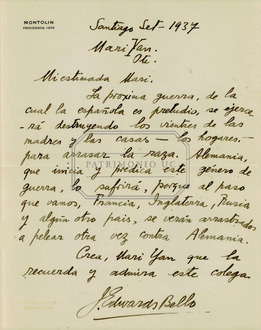 MONTOLIN
PROVIDENCIA 1535
Santiago Set-1937
Mari Yan.
Mi estimada Mari.
La próxima guerra, de la
cual la española es preludio, se ejerce-
-rá destruyendo los vientres de las
madres y las casas - los hogares -
para arrasar la raza. Alemania,
que inicia y predica este género de
guerra, lo sufrirá, porque al paso
que vamos, Francia, Inglaterra, Rusia
y algún otro país, se verán arrastrados
a pelear otra vez contra Alemania.
Crea, Mari Yan que la
recuerda y admira este colega.
J. Edwards Bello
PATRIMONIO UC